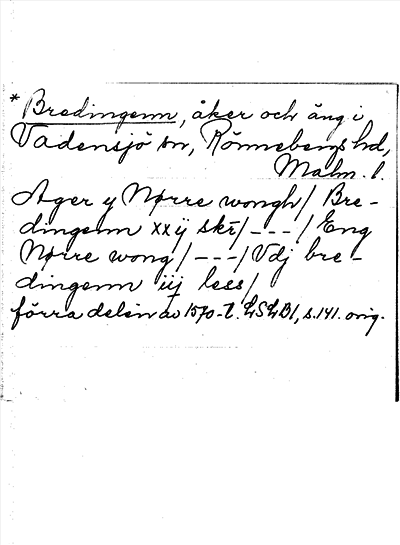 *Bredingenn, åker och äng i
Vadensjö sn, Rönnebergs hd,
Malm. l.
Ager y Nørre wongh/ Bre-
dingenn xxij skr/---/ Eng
Nørre wong/---/ Vdj bre-
dingenn iij less/
förra delen av 1570-t. LSLB1, s. 141. orig.